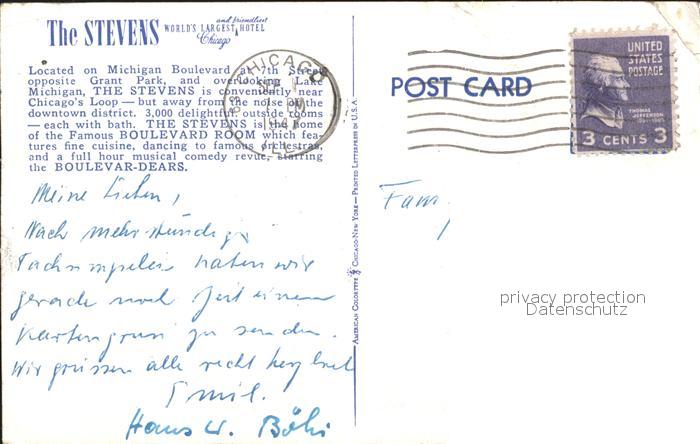 The STEVENS
WORLD'S LARGEST HOTEL
and friendliest
Chicago
Located on Michigan Boulevard at 7th Street
opposite Grant Park, and overlooking Lake
Michigan, THE STEVENS is conveniently near
Chicago's Loop — but away from the noise of the
downtown district. 3,000 delightful outside rooms
— each with bath. THE STEVENS is the home
of the Famous BOULEVARD ROOM which fea-
tures fine cuisine, dancing to famous orchestras,
and a full hour musical comedy revue, starring
the BOULEVAR-DEARS.
Meine Lieben,
Nach mehrstündiger
haben wir
gerade noch Zeit einen
Kartengruss zu senden.
Wir grüssen alle recht herzlich
Emil.
Hans W.
AMERICAN COLORTYPE CHICAGO-NEW YORK — PRINTED LETTERPRESS IN U.S.A.
CHICAGO
SEP
ILL
POST CARD
UNITED
STATES
POSTAGE
THOMAS
JEFFERSON
3 CENTS 3
Fam.
privacy protection
Datenschutz